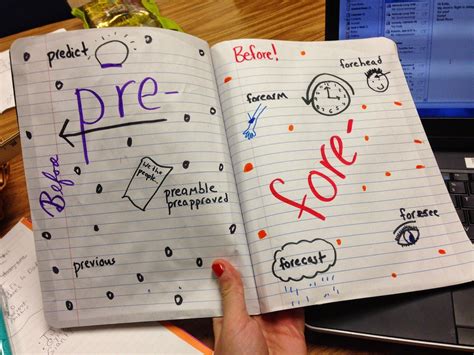 predict
pre-
Before
We the
people...
preamble
preapproved
previous
Before!
forehead
forearm
fore-
foresee
forecast